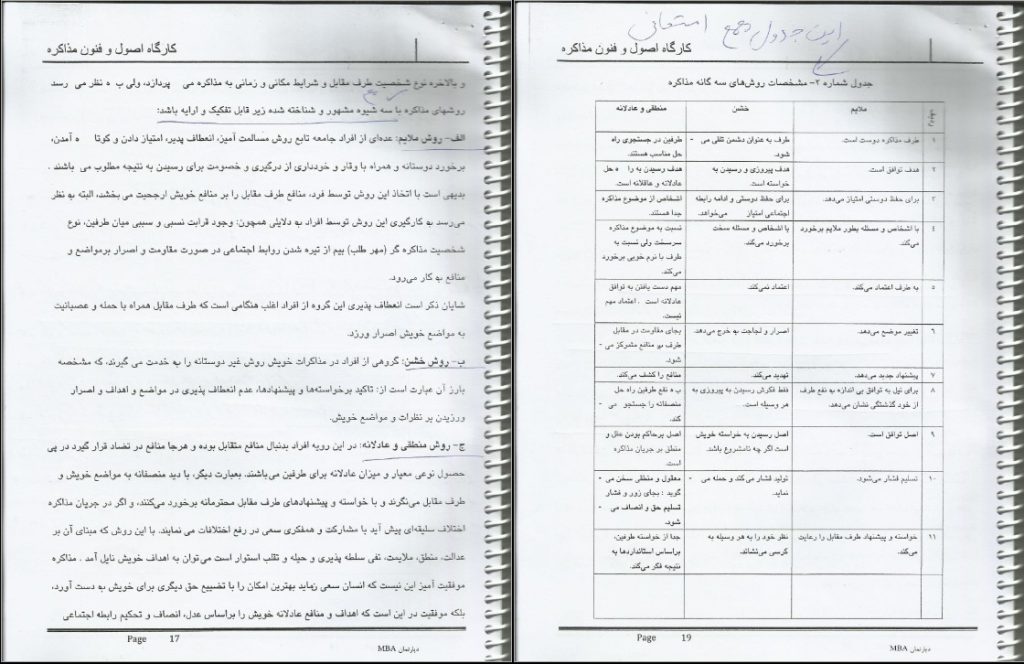 کارگاه اصول و فنون مذاکره
و بالاخره نوع شخصیت طرف مقابل و شرایط مکانی و زمانی به مذاکره می پردازد، ولی ب ه نظر می رسد
روشهای مذاکره با سه شیوه مشهور و شناخته شده زیر قابل تفکیک و ارایه باشد:
الف- روش ملایم: عده‌ای از افراد جامعه تابع روش مسالمت آمیز، انعطاف پذیر، امتیاز دادن و کوتا ه آمدن،
برخورد دوستانه و همراه با وقار و خودداری از درگیری و خصومت برای رسیدن به نتیجه مطلوب می باشند .
بدیهی است با اتخاذ این روش توسط فرد، منافع طرف مقابل را بر منافع خویش ارجحیت می بخشد، البته به نظر
می‌رسد به کارگیری این روش توسط افراد به دلایلی همچون: وجود قرابت نسبی و سببی میان طرفین، نوع
شخصیت مذاکره گر (مهر طلب) بیم از تیره شدن روابط اجتماعی در صورت مقاومت و اصرار برمواضع و
منافع به کار می‌رود.
شایان ذکر است انعطاف پذیری این گروه از افراد اغلب هنگامی است که طرف مقابل همراه با حمله و عصبانیت
به مواضع خویش اصرار ورزد.
ب- روش خشن: گروهی از افراد در مذاکرات خویش روش غیر دوستانه را به خدمت می گیرند، که مشخصه
بارز آن عبارت است از: تاکید برخواسته‌ها و پیشنهادها، عدم انعطاف پذیری در مواضع و اهداف و اصرار
ورزیدن بر نظرات و مواضع خویش.
ج- روش منطقی و عادلانه: در این رویه افراد بدنبال منافع متقابل بوده و هرجا منافع در تضاد قرار گیرد در پی
حصول نوعی معیار و میزان عادلانه برای طرفین می‌باشند. بعبارت دیگر، با دید منصفانه به مواضع خویش و
طرف مقابل می‌نگرند و با خواسته و پیشنهادهای طرف مقابل محترمانه برخورد می‌کنند، و اگر در جریان مذاکره
اختلاف سلیقه‌ای پیش آید با مشارکت و همفکری سعی در رفع اختلافات می نمایند. با این روش که مبنای آن بر
عدالت، منطق، ملایمت، نفی سلطه پذیری و حیله و تقلب استوار است می‌توان به اهداف خویش نایل آمد . مذاکره
موفقیت آمیز این نیست که انسان سعی نماید بهترین امکان را با تضییع حق دیگری برای خویش به دست آورد،
بلکه موفقیت در این است که اهداف و منافع عادلانه خویش را براساس عدل، انصاف و تحکیم رابطه اجتماعی
Page 17
دپارتمان MBA
این جدول مهم امتحانی
کارگاه اصول و فنون مذاکره
جدول شماره ۲- مشخصات روش‌های سه گانه مذاکره
ملایم خشن منطقی و عادلانه
۱ طرف مذاکره دوست است. طرف به عنوان دشمن تلقی می - طرفین در جستجوی راه
شود. حل مناسب هستند.
۲ هدف توافق است. هدف پیروزی و رسیدن به هدف رسیدن به را ه حل
خواسته است. عادلانه و عاقلانه است.
۳ برای حفظ دوستی امتیاز می‌دهد. برای حفظ دوستی و ادامه رابطه اشخاص از موضوع مذاکره
اجتماعی امتیاز می‌خواهد. جدا هستند.
۴ با اشخاص و مسئله بطور ملایم برخورد با اشخاص و مسئله سخت نسبت به موضوع مذاکره
می‌کند. برخورد می‌کند. سرسخت ولی نسبت به
طرف با نرم خویی برخورد
می‌کند.
۵ به طرف اعتماد می‌کند. اعتماد نمی‌کند. مهم دست یافتن به توافق
عادلانه است . اعتماد مهم
نیست.
۶ تغییر موضع می‌دهد. اصرار و لجاجت به خرج می‌دهد. بجای مقاومت در مقابل
طرف به منافع متمرکز می -
شود.
۷ پیشنهاد جدید می‌دهد. تهدید می‌کند. منافع را کشف می‌کند.
۸ برای نیل به توافق بی اندازه به نفع طرف فقط فکرش رسیدن به پیروزی به ب ه نفع طرفین راه حل
از خود گذشتگی نشان می‌دهد. هر وسیله است. منصفانه را جستجو می -
کند.
۹ اصل توافق است. اصل رسیدن به خواسته خویش اصل برحاکم بودن عقل و
است اگر چه نامشروع باشد. منطق بر جریان مذاکره
است.
۱۰ تسلیم فشار می‌شود. تولید فشار می‌کند و حمله می - معقول و منطقی سخن می -
نماید. گوید : بجای زور و فشار
تسلیم حق و انصاف می -
شود.
۱۱ خواسته و پیشنهاد طرف مقابل را رعایت نظر خود را به هر وسیله به جدا از خواسته طرفین،
می‌کند. کرسی می‌نشاند. براساس استانداردها به
نتیجه فکر می‌کند.
Page 19
دپارتمان MBA